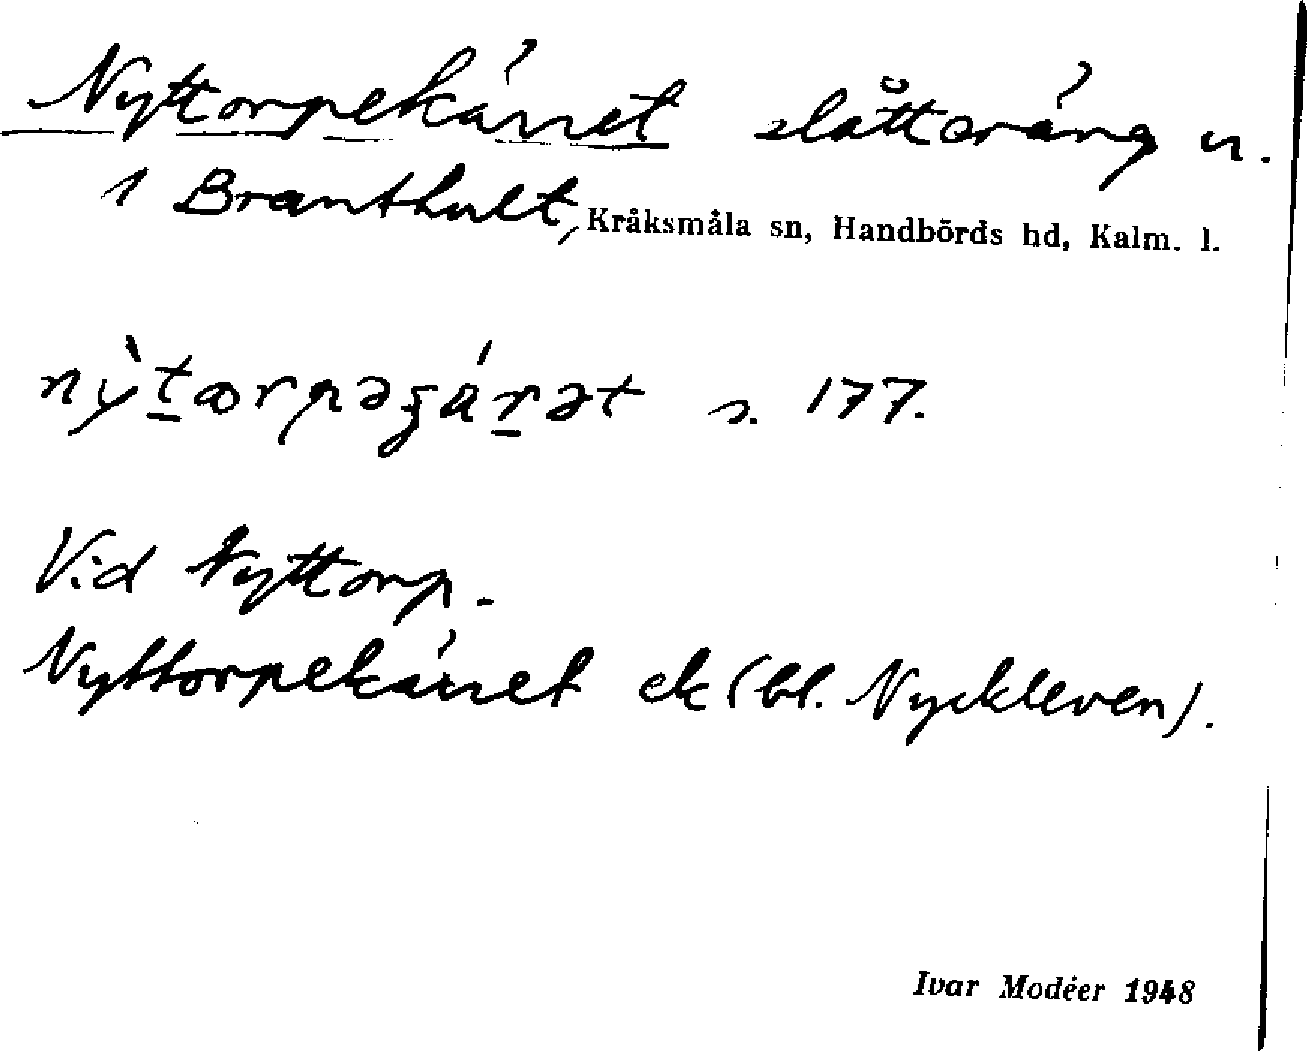 Nyttorpekärret slåtteräng n.
1 Branthult, Kråksmåla sn, Handbörds hd, Kalm. l.
s. 177.
Vid Nyttorp.
Nyttorpekärret ek (bl. Nyckleven).
Ivar Modéer 1948